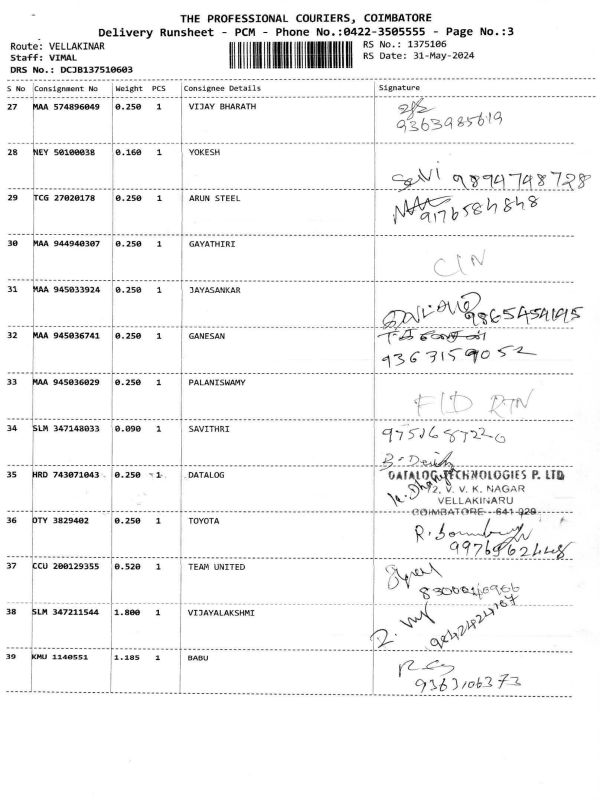 THE PROFESSIONAL COURIERS, COIMBATORE
Delivery Runsheet - PCM - Phone No.:0422-3505555 - Page No.:3
Route: VELLAKINAR
Staff: VIMAL
DRS No.: DCJB137510603
RS No.: 1375106
RS Date: 31-May-2024
S No Consignment No Weight PCS Consignee Details Signature
27 MAA 574896049 0.250 1 VIJAY BHARATH
9363985619
28 NEY 50100038 0.160 1 YOKESH
Selvi 9894748728
29 TCG 27020178 0.250 1 ARUN STEEL
9176584848
30 MAA 944940307 0.250 1 GAYATHIRI
C/N
31 MAA 945033924 0.250 1 JAYASANKAR
32 MAA 945036741 0.250 1 GANESAN
9363159052
33 MAA 945036029 0.250 1 PALANISWAMY
RTN
34 SLM 347148033 0.090 1 SAVITHRI
35 HRD 743071043 0.250 1 DATALOG
DATALOG TECHNOLOGIES P. LTD
72, V. V. K. NAGAR
VELLAKINARU
COIMBATORE - 641 029
36 DTY 3829402 0.250 1 TOYOTA
37 CCU 200129355 0.520 1 TEAM UNITED
38 SLM 347211544 1.800 1 VIJAYALAKSHMI
39 KMU 1140551 1.185 1 BABU
9363106373